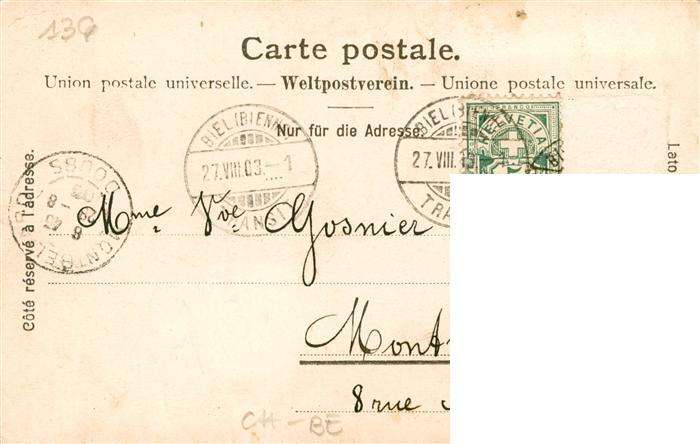 139
Carte postale.
Union postale universelle. — Weltpostverein. — Unione postale universale.
Nur für die Adresse.
BIEL (BIENNE)
27.VIII.03. — 1
TRANSIT
BIEL (BIEN
27.VIII.03
TRA
FRANCO
HELVETIA
DOUBS
MONTBELIARD
Côté réservé à l'adresse.
Lato
Mme Vve Gosnier
Mont
8 rue
CH - BE